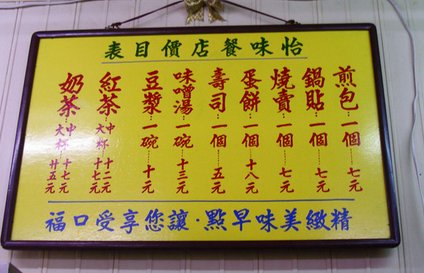 怡味餐店價目表
煎包一個……七元
鍋貼一個……七元
燒賣一個……七元
蛋餅一個……十八元
壽司一個……五元
味噌湯一碗……十三元
豆漿一碗……十元
紅茶中杯……十二元
大杯……十七元
奶茶中杯……十七元
大杯……廿五元
精緻美味早點·讓您享受口福